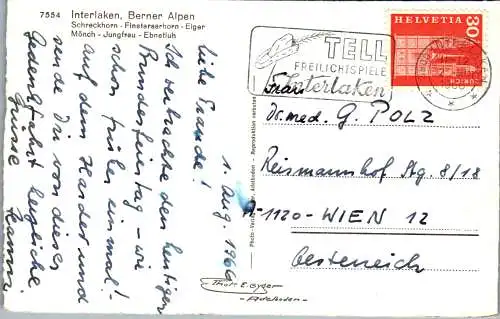 7554 Interlaken, Berner Alpen
Schreckhorn - Finsteraarhorn - Eiger
Mönch - Jungfrau - Ebnefluh
1. Aug. 1966
Liebe Freunde!
Ich verbrachte den heutigen
Bundesfeiertag – wie
schon früher einmal! –
auf dem Harder und
sende Dir von dieser
Gedenkfahrt herzliche
Grüsse
Hanni
TELL
FREILICHTSPIELE
Interlaken
HELVETIA
30
Frau
Dr. med. G. POLZ
Reismannhof Stg. 8/18
A-1120-WIEN 12
Oesterreich
Thor E. Gyger
Adelboden